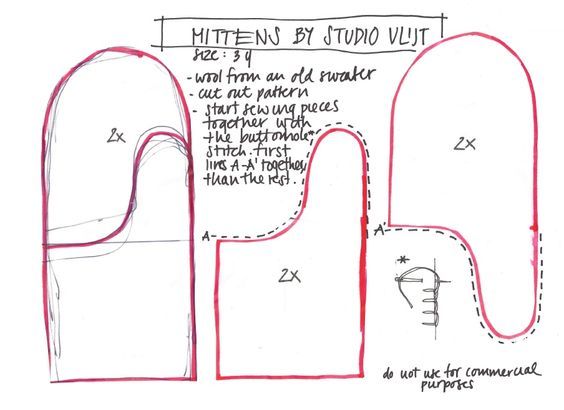 MITTENS BY STUDIO VLIJT
SIZE: 3 y
- wool from an old sweater
- cut out pattern
- start sewing pieces
together with
the buttonhole*
stitch. first
lines A-A' together,
than the rest.
2x
2x
2x
A
A'
*
do not use for commercial
purposes